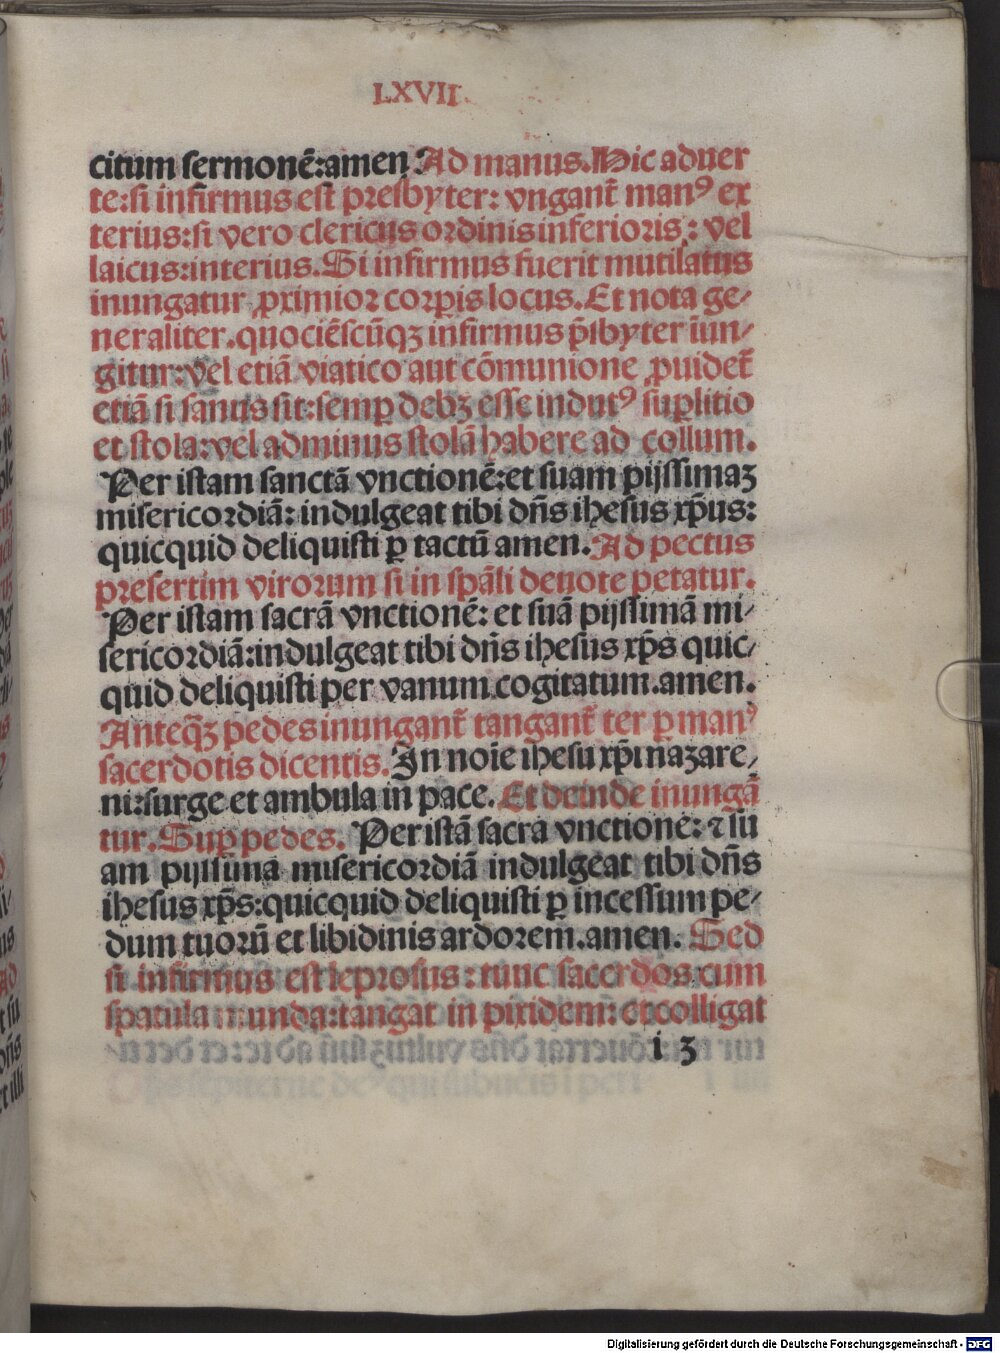 LXVII
citum sermonē:amen Ad manus. Hic aduer
te:si infirmus est presbyter: vngant̄ manꝰ ex
terius:si vero clericus ordinis inferioris: vel
laicus:interius. Si infirmus fuerit mutilatus
inungatur ꝓximior corꝑis locus. Et nota ge-
neraliter. quociēscūqꝫ infirmus p̄sbyter iun-
gitur: vel etiā viatico aut cōmunione ꝓuidet̄
etiā si sanus sit: semꝑ debꝫ esse indutꝰ suꝑlitio
et stola: vel adminus stolā habere ad collum.
Per istam sanctā vnctionē: et suam pijssimaꝫ
misericordiā: indulgeat tibi dn̄s ihesus xp̄us:
quicquid deliquisti ꝑ tactū amen. Ad pectus
presertim virorum si in spāli deuote petatur.
Per istam sacrā vnctionē: et suā pijssimā mi-
sericordiā:indulgeat tibi dn̄s ihesus xp̄s quic-
quid deliquisti per vanum cogitatum. amen.
Anteq̄ꝫ pedes inungant̄ tangant̄ ter ꝑ manꝰ
sacerdotis dicentis. In noīe ihesu xp̄i nazare-
ni:surge et ambula in pace. Et deinde inungā
tur. Suꝑ pedes. Per istā sacra vnctionē: ⁊ su
am pijssimā misericordiā indulgeat tibi dn̄s
ihesus xp̄s:quicquid deliquisti ꝑ incessum pe-
dum tuorū et libidinis ardorem. amen. Sed
si infirmus est leprosus: tunc sacerdos cum
spatula munda: tangat in pixidem: et colligat
i 3
Digitalisierung gefördert durch die Deutsche Forschungsgemeinschaft - DFG